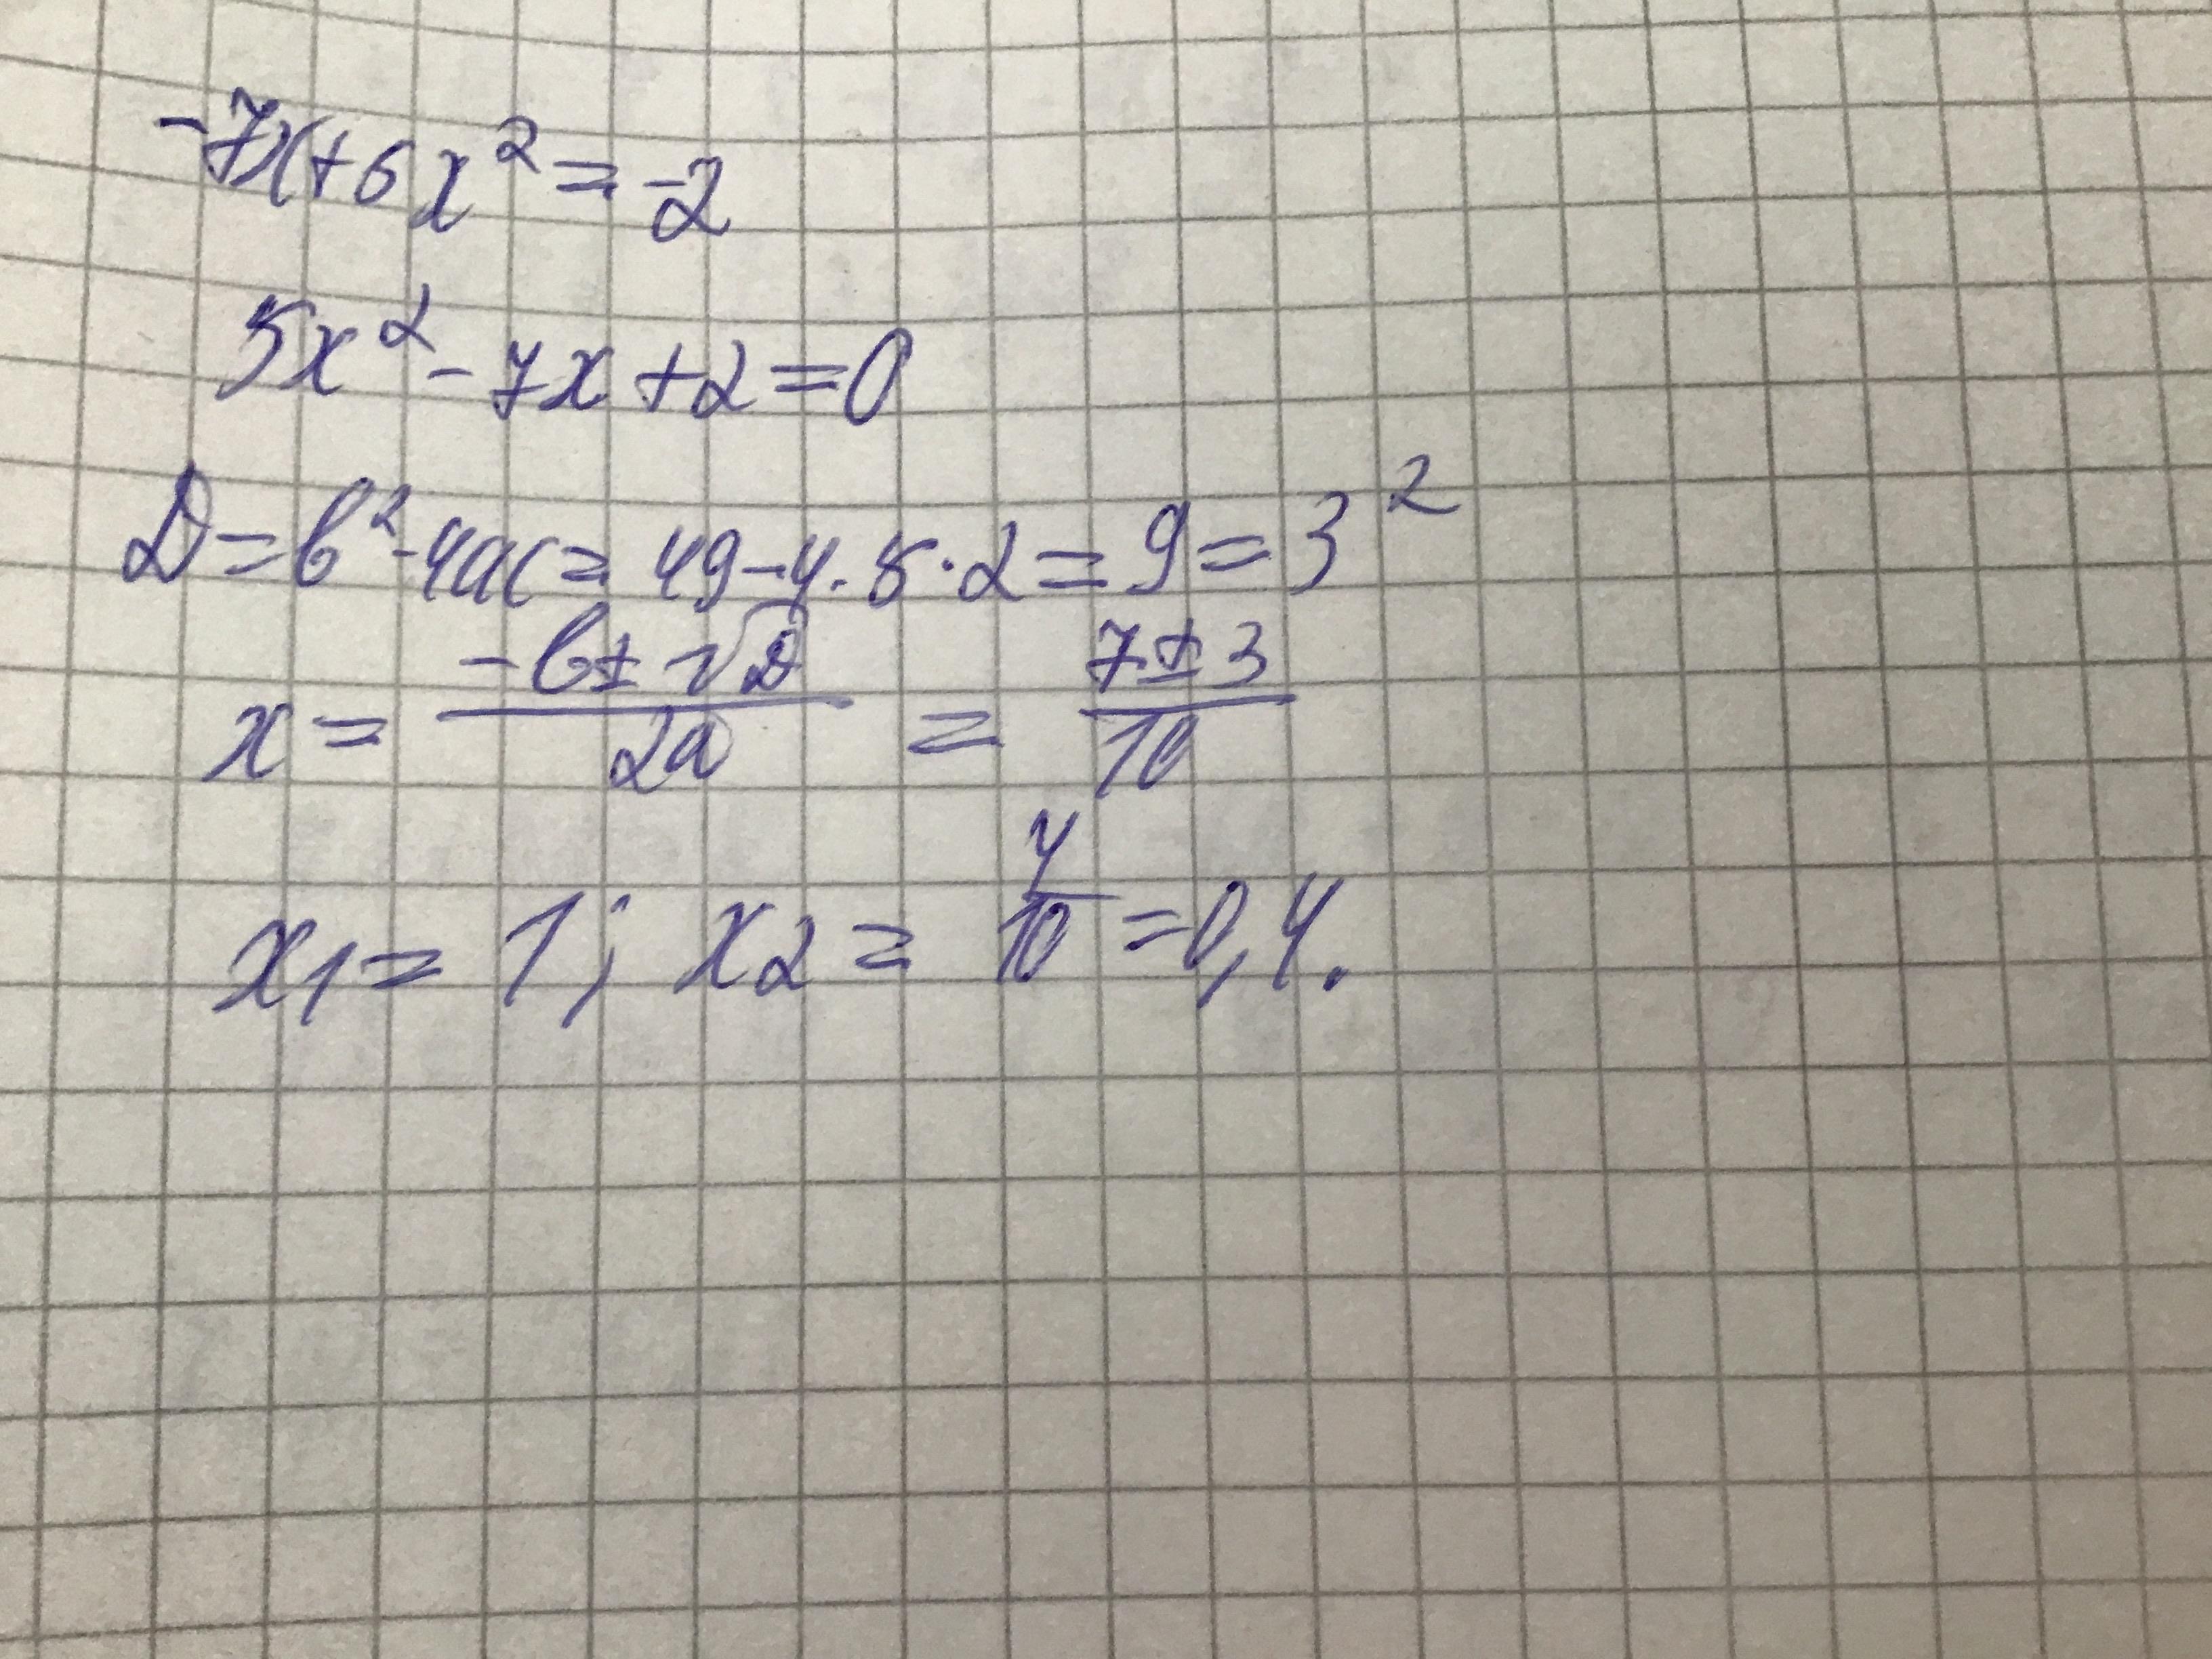 -7x+5x²=-2
5x²-7x+2=0
D=b²-4ac=49-4·5·2=9=3²
x=(-b±√D)/(2a)=(7±3)/10
x1=1; x2=4/10=0,4.